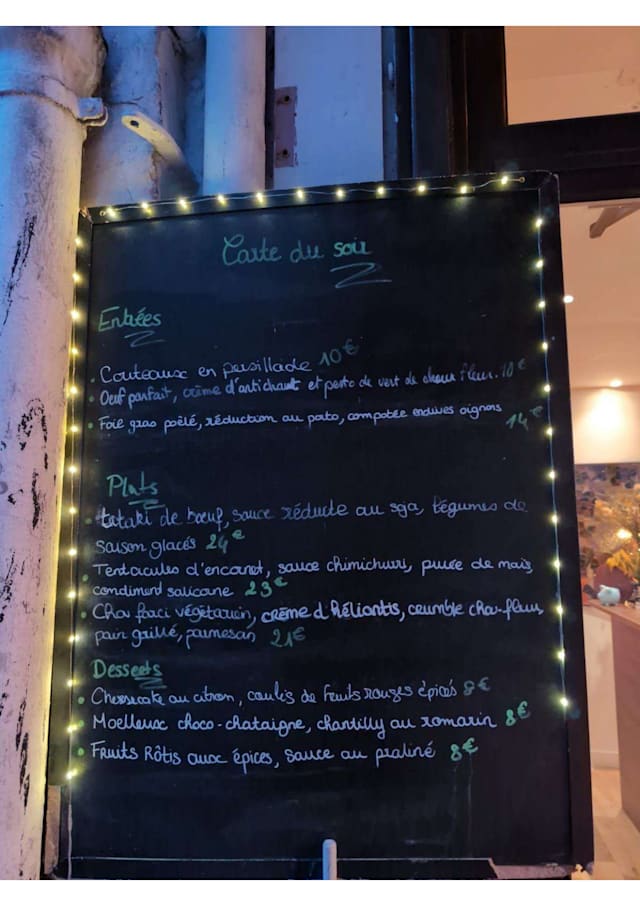 Carte du soir
Entrées
• Couteaux en persillade 10€
• Oeuf parfait, crème d'artichaut et pesto de vert de choux fleur. 10€
• Foie gras poêlé, réduction au porto, compotée endives oignons
14€
Plats
• tataki de boeuf, sauce réduite au soja, légumes de
saison glacés 24€
• Tentacules d'encornet, sauce chimichurri, purée de maïs,
condiment salicorne 23€
• Chou farci végétarien, crème d'héliantis, crumble chou-fleur,
pain grillé, parmesan 21€
Desserts
• Cheesecake au citron, coulis de fruits rouges épicés 8€
• Moelleux choco-chataigne, chantilly au romarin 8€
• Fruits Rôtis aux épices, sauce au praliné 8€